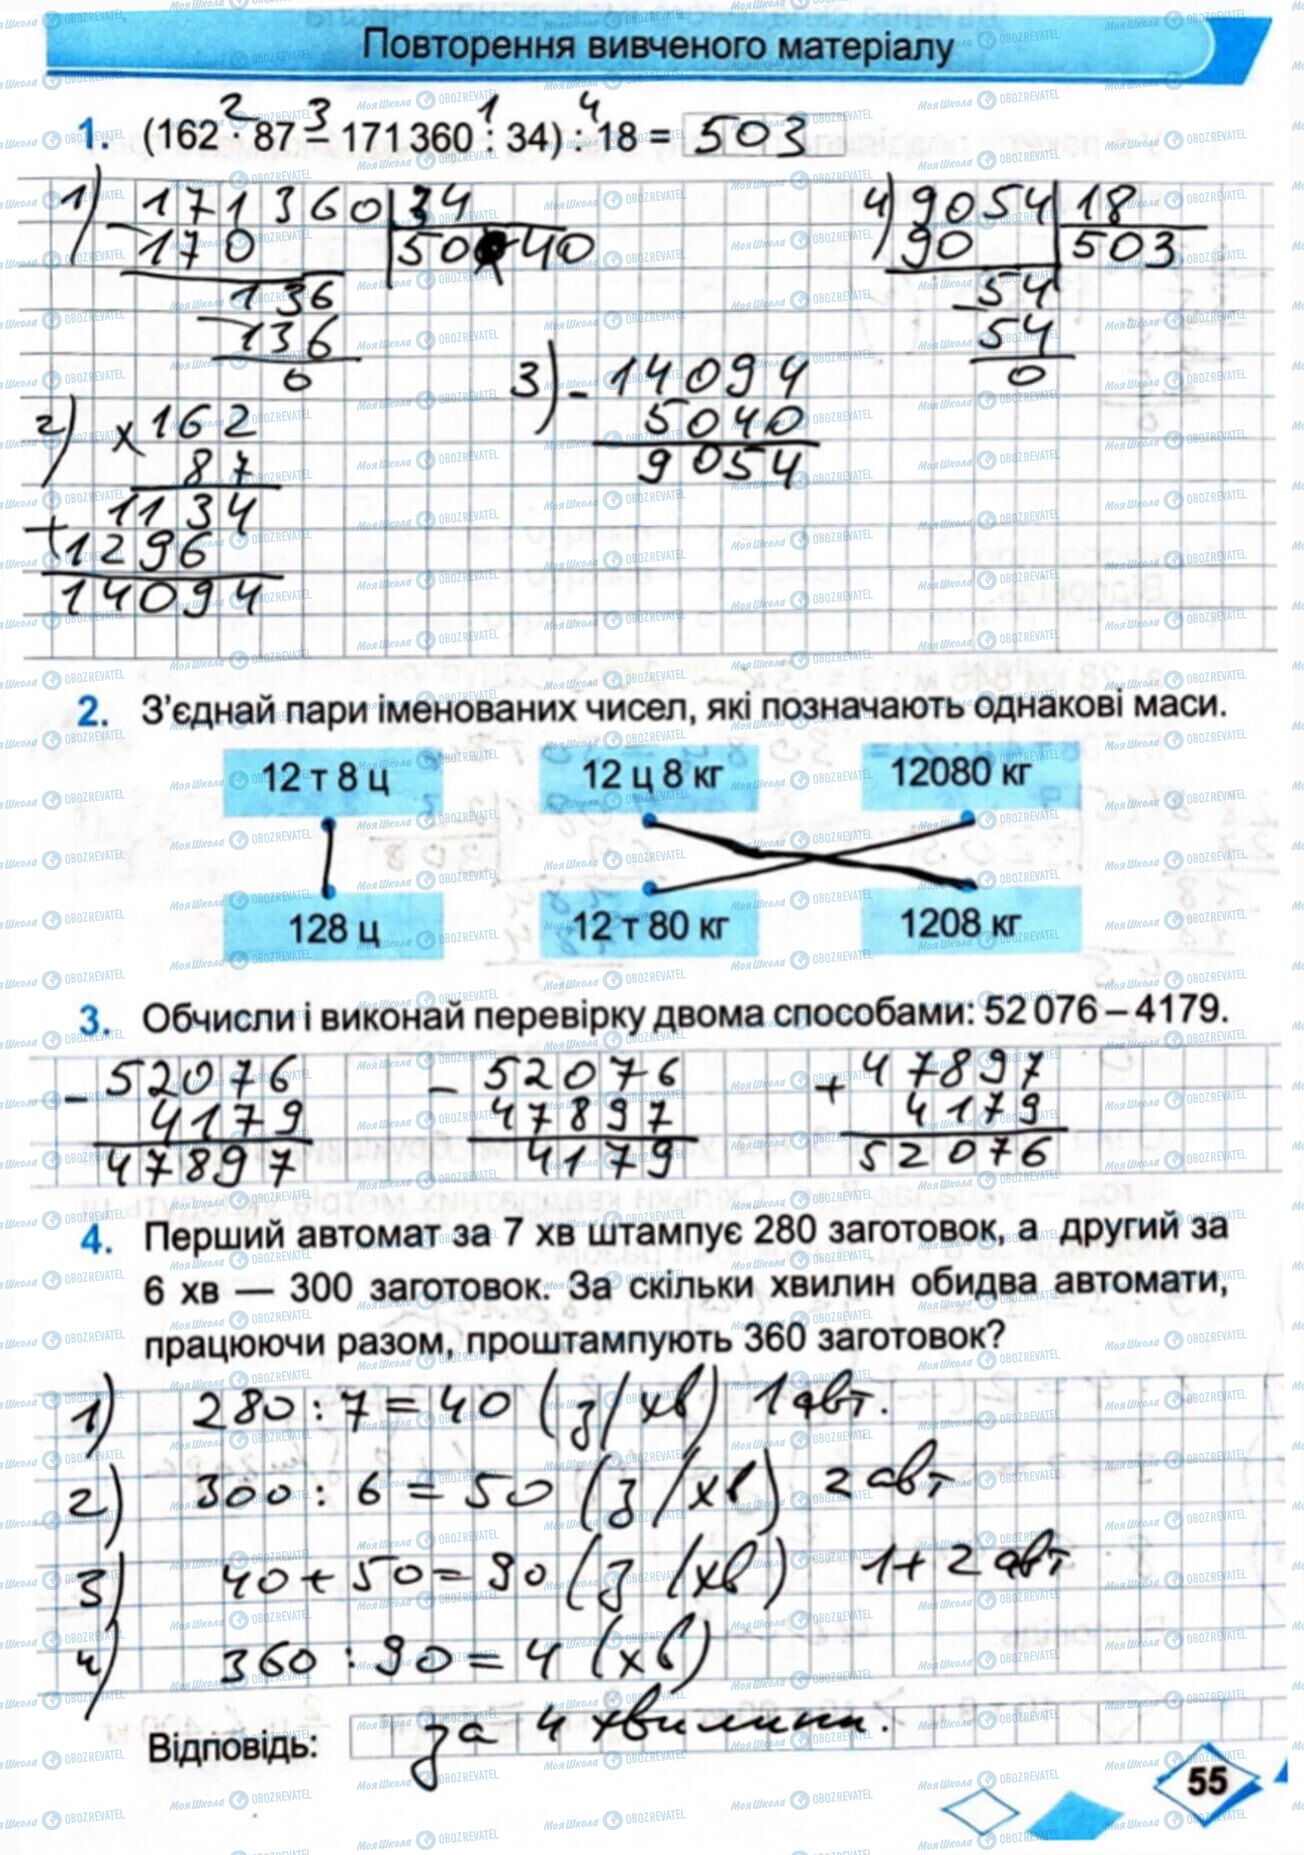 Повторення вивченого матеріалу
1. (162 · 87 – 171 360 : 34) : 18 = 503
2 3 1 4
1) – 171360 34
170 5040
136
– 136
0
2) × 162
87
1134
+ 1296
14094
3) – 14094
5040
9054
4) 9054 18
90 503
– 54
54
0
2. З’єднай пари іменованих чисел, які позначають однакові маси.
12 т 8 ц 12 ц 8 кг 12080 кг
128 ц 12 т 80 кг 1208 кг
3. Обчисли і виконай перевірку двома способами: 52 076 – 4179.
– 52076 – 52076 + 47897
4179 47897 4179
47897 4179 52076
4. Перший автомат за 7 хв штампує 280 заготовок, а другий за
6 хв — 300 заготовок. За скільки хвилин обидва автомати,
працюючи разом, проштампують 360 заготовок?
1) 280 : 7 = 40 (з/хв) 1 авт.
2) 300 : 6 = 50 (з/хв) 2 авт
3) 40 + 50 = 90 (з/хв) 1 + 2 авт
4) 360 : 90 = 4 (хв)
Відповідь: за 4 хвилини.
55
МояШкола OBOZREVATEL